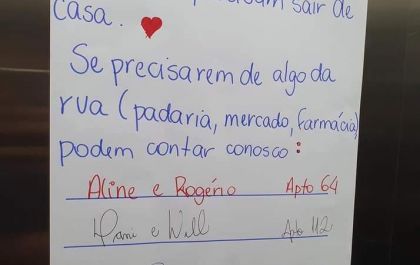 sair de
casa.
Se precisarem de algo da
rua (padaria, mercado, farmácia)
podem contar conosco:
Aline e Rogério Apto 64
Dani e Will Apto 112